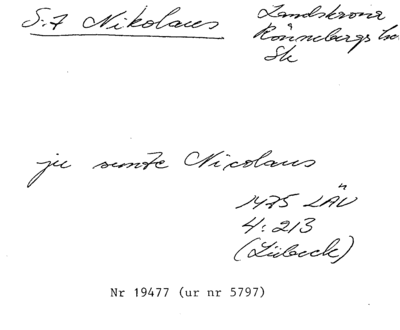 S:t Nikolaus
Landskrona
Rönnebergs hd
Sk
ju sunte Nicolaus
1475 LÄU
4:213
(Lübeck)
Nr 19477 (ur nr 5797)